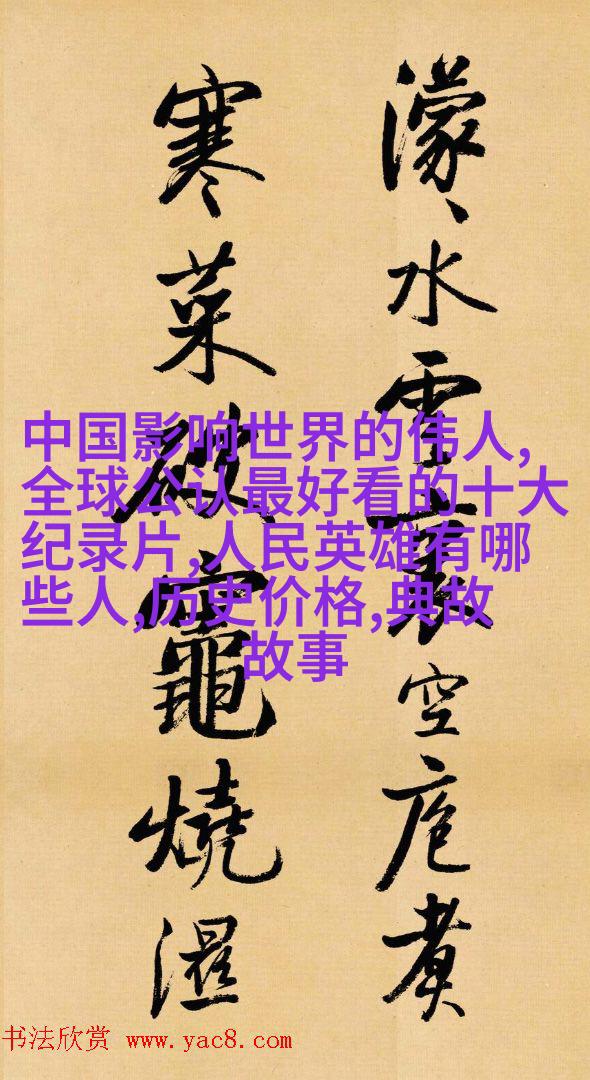 濛々水雲裏空庖煮
寒菜破竈燒濕
中国影响世界的伟人,
全球公认最好看的十大
纪录片,人民英雄有哪
些人,历史价格,典故
故事
书法欣赏 www.yac8.com